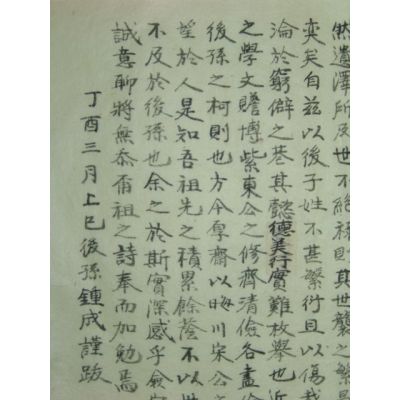 然遺澤所及世不絕祿則其世襲之繁
奕矣自兹以後子姓不甚繁衍且以傷哉
淪於窮僻之巷其懿德美行實難枚擧也近
之學文贍博紫東公之修齊清儉各盡
後孫之柯則也方今厚齋以晦川宋公
望於人是知吾祖先之積累餘蔭不以世
不及於後孫也余之於斯實深感乎僉宗
誠意聊將無忝爾祖之詩奉而加勉焉
丁酉三月上巳後孫鍾成謹跋